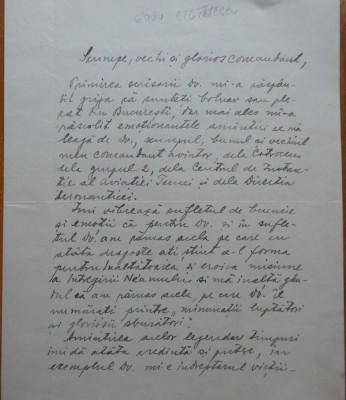 Scumpe, vechi și glorios comandant,
Primirea scrisorii Dv. mi-a
grija că sunteți bolnav sau ple-
cat din București, iar mai ales mi-a
răscolit emoționantele amintiri ce mă
leagă de Dv., scumpul, bunul și vechiul
meu comandant aviator, dela Cotroceni
dela grupul 2, dela Centrul de Instruc-
ție al Aviației Tecuci și dela Direcția
Aeronauticei.
Îmi vibrează sufletul de bucurie
și emoție că pentru Dv. și în sufle-
tul Dv. am rămas acela pe care cu
atâta dragoste ați știut a-l forma
pentru înălțătoarea și eroica misiune
a întregirii Neamului și mă înalță gân-
dul că am rămas acela pe care Dv. îl
numărați printre „minunații luptători
și glorioșii sburători".
Amintirea acelor legendare timpuri
îmi dă atâta credință și putere, iar
exemplul Dv. mi-e îndreptarul vieții.